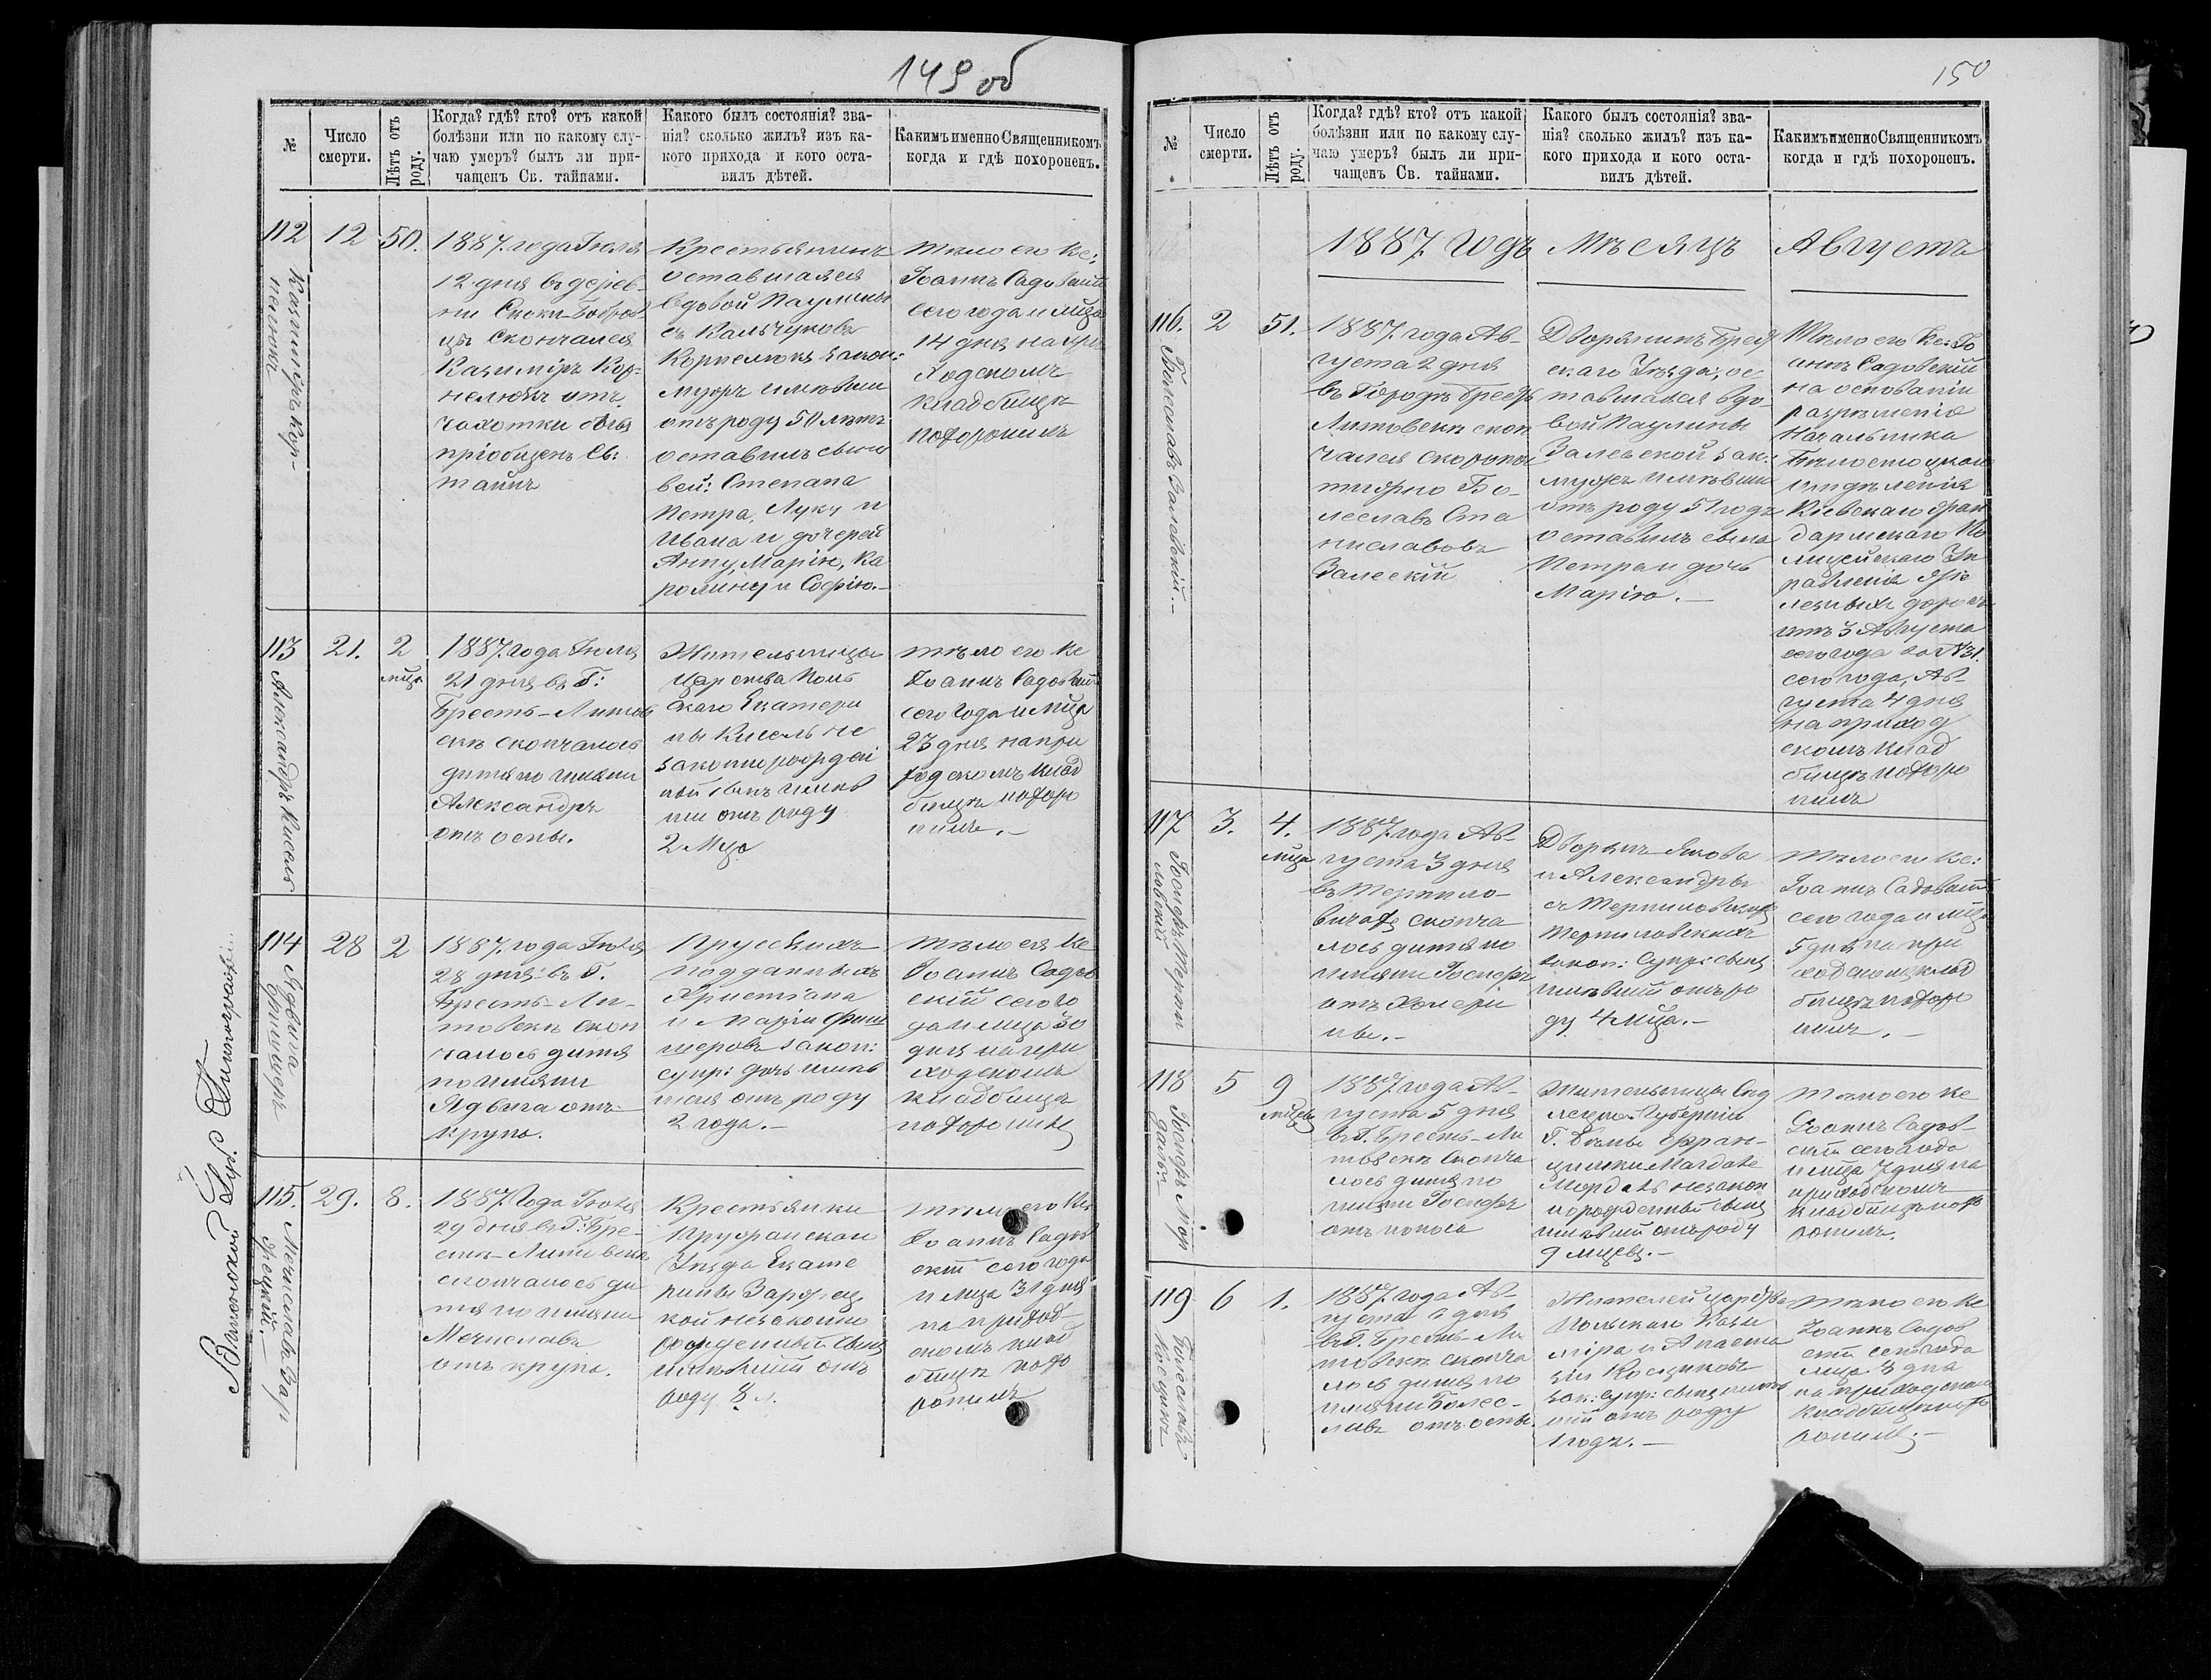 149 об
№
Число
смерти.
Лѣтъ отъ
роду.
Когда? гдѣ? кто? отъ какой
болѣзни или по какому слу-
чаю умеръ? былъ ли при-
чащенъ Св. тайнами.
Какого былъ состоянія? зва-
нія? сколько жилъ? изъ ка-
кого прихода и кого оста-
вилъ дѣтей.
Какимъ именно Священникомъ
когда и гдѣ похороненъ.
112
Казиміръ Кор-
нелюкъ
12
50.
1887. года Іюля
12 дня въ дерев-
ни Скоки-Бобров
цы скончался
Казиміръ Кор-
нелюкъ отъ
чахотки былъ
пріобщенъ Св:
тайнъ
Крестьянинъ
оставшаяся
вдовой Паулины
съ Кальчуковъ
Корнелюкъ закон:
мужъ имѣвши
отъ роду 50 лѣтъ
оставилъ сыно
вей: Степана
Петра, Луку и
Ивана и дочерей
Анну, Марію, Ка
ролину и Софію.-
тѣло его Ке:
Іоаннъ Садовскій
сего года и мѣца
14 дня на при
ходскомъ
кладбищѣ
похоронилъ
113
Александръ Кисель
21.
2
мѣца
1887. года Іюля
21 дня въ Г:
Брестъ-Литов
скѣ скончалось
дитя по имени
Александръ
отъ оспы.
Жительницы
Царства Поль
скаго Екатери
ны Кисель не
законно рожден
ный сынъ имѣв
ши отъ роду
2 Мца
тѣло его Ке
Іоаннъ Садовскій
сего года и мѣца
23 дня на при
ходскомъ клад
бищѣ похоро
нилъ.-
114
Ядвига
Фришеръ
28
2
1887. года Іюля
28 дня въ Г.
Брестъ-Ли-
товскѣ скон
чалось дитя
по имени
Ядвига отъ
крупа.
Прусскихъ
подданныхъ
Христіана
и Маріи Фриш
шеровъ закон:
супр: дочь имѣв
шая отъ роду
2 года.-
тѣло ея Ке
Іоаннъ Садов
скій сего го
да и мѣца 30
дня на при
ходскомъ
кладбищѣ
похоронилъ
115.
Мечиславъ Зар-
жецкій.-
29.
8.
1887. года Іюля
29 дня въ Г: Бре-
стъ-Литовскѣ
скончалось ди
тя по имени
Мечиславъ
отъ крупа.
Крестьянки
Пружанскаго
Уѣзда Екате
рины Заржец
кой незаконно
рожденный сынъ
имѣвшій отъ
роду 8 л.
тѣло его Ке:
Іоаннъ Садов
скій сего года
и мѣца 31 дня
на приход-
скомъ клад
бищѣ похо
ронилъ
150
№
Число
смерти.
Лѣтъ отъ
роду.
Когда? гдѣ? кто? отъ какой
болѣзни или по какому слу-
чаю умеръ? былъ ли при-
чащенъ Св. тайнами.
Какого былъ состоянія? зва-
нія? сколько жилъ? изъ ка-
кого прихода и кого оста-
вилъ дѣтей.
Какимъ именно Священникомъ
когда и гдѣ похороненъ.
1887. Годъ Мѣсяцъ Августъ
116.
Болеславъ Залевскій.-
2
51.
1887. года Ав-
густа 2 дня
въ Городѣ Брестъ
Литовскѣ скон
чался скоропос
тижно Бо-
леславъ Ста
ниславовъ
Залескій
Дворянинъ Брест
скаго Уѣзда, ос
тавшаяся вдо-
вой Паулины
Залевской зак:
мужъ имѣвши
отъ роду 51 годъ
оставилъ сына
Петра и дочь
Марію.-
Тѣло его Ке: Іо
аннъ Садовскій
на основаніи
разрѣшенія
Начальника
Бѣлостоцкаго
отдѣленія
Кіевскаго Жан
дармскаго По
лицейскаго Уп
равленія Же
лезныхъ дорогъ
отъ 3 Августа
сего года за №31.
сего года, Ав-
густа 4 дня
на приход
скомъ клад
бищѣ похоро
нилъ
117
Іосифъ Терпи
ловскій
3.
4.
мѣца
1887. года Ав-
густа 3 дня
въ Терпило-
вичахъ сконча
лось дитя по
имени Іосифъ
отъ холери
ны.-
Дворянъ Якова
и Александры
съ Терпиловскихъ
Терпиловскихъ
закон: Супр: сынъ
имѣвшій отъ ро
ду 4 мѣца.-
Тѣло его Ке:
Іоаннъ Садовскій
сего года и мѣца
5 дня на при
ходскомъ клад
бищѣ похоро
нилъ.-
118
Іосифъ Мор
5
9
мѣцевъ
1887. года Ав-
густа 5 дня
въ Г. Брестъ-Ли
товскѣ сконча
лось дитя по
имени Іосифъ
отъ поноса
Жительницы Сед
лецкой Губерніи
Г. Бѣлы Фран-
цишки Mardale
незакон
но рожденный сынъ
имѣвшій отъ роду
9 мѣцевъ.-
тѣло его Ке
Іоаннъ Садов-
скій сего года
и мѣца 7 дня на
приходскомъ
кладбищѣ похо
ронилъ.
119
Болеславъ
Косцикъ
6
1.
1887. года Ав-
густа 6 дня
въ Г. Брестъ-Ли
товскѣ сконча
лось дитя по
имени Болес-
лавъ отъ оспы.
Жителей Царства
Польскаго Кази
міра и Анаста
зіи Косциковъ
зак: супр: сынъ имѣв
шій отъ роду
1 годъ.-
тѣло его Ке
Іоаннъ Садов
скій сего года
мѣца дня
на приходскомъ
кладбищѣ похо
ронилъ.-